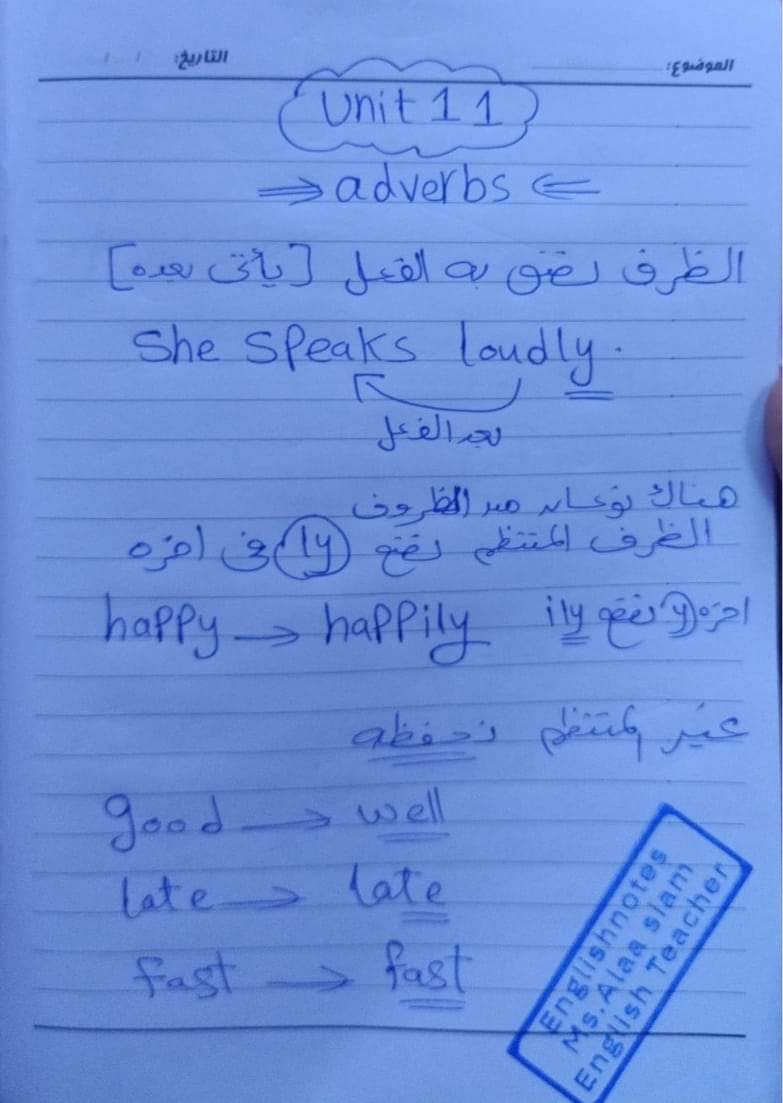 الموضوع: التاريخ: / /
Unit 11
⇒ adverbs ⇐
الظرف نصف به الفعل [يأتى بعده]
She speaks loudly.
بعد الفعل
هناك نوعان من الظروف
الظرف المنتظم نضع ly فى اخره
اخره y نضع ily
happy → happily
غير المنتظم نحفظه
good → well
late → late
fast → fast
Englishnotes
Ms. Alaa siam
English Teacher